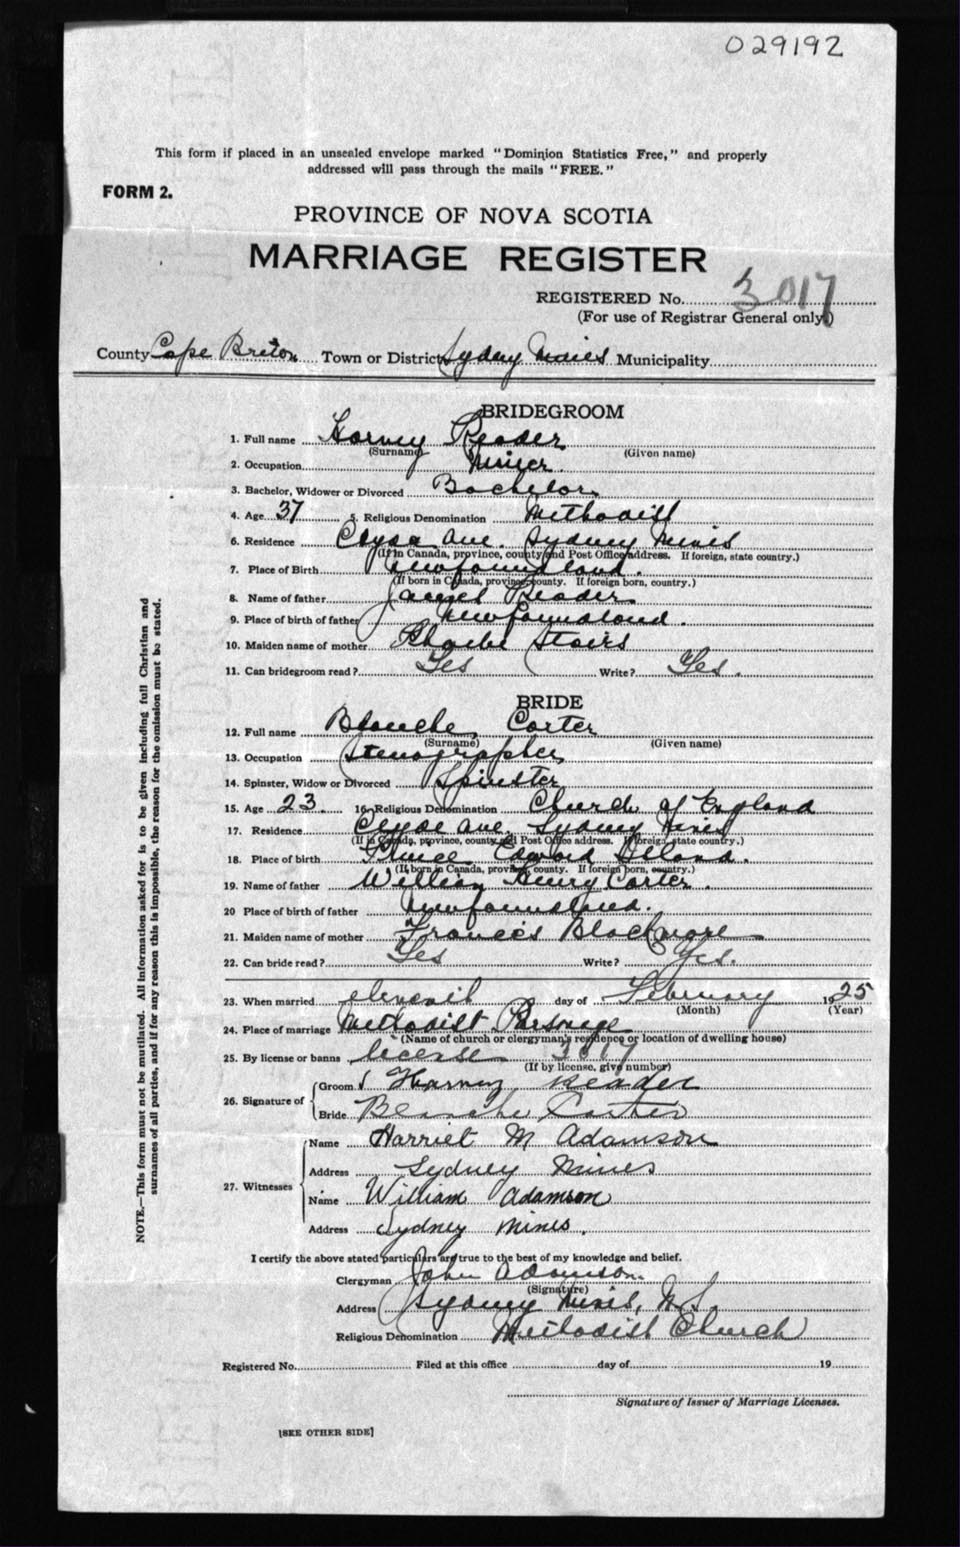 029192
This form if placed in an unsealed envelope marked "Dominion Statistics Free," and properly
addressed will pass through the mails "FREE."
FORM 2.
PROVINCE OF NOVA SCOTIA
MARRIAGE REGISTER
REGISTERED No. 3017
(For use of Registrar General only.)
County Cape Breton Town or District Sydney Mines Municipality
BRIDEGROOM
1. Full name Harvey Reader
(Surname) (Given name)
2. Occupation Miner
3. Bachelor, Widower or Divorced Bachelor
4. Age 37 5. Religious Denomination Methodist
6. Residence Clyde Ave. Sydney Mines
(If in Canada, province, county and Post Office address. If foreign, state country.)
7. Place of Birth Newfoundland.
(If born in Canada, province, county. If foreign born, country.)
8. Name of father James Reader
9. Place of birth of father Newfoundland.
10. Maiden name of mother Phoebe Stairs
11. Can bridegroom read? Yes Write? Yes.
BRIDE
12. Full name Blanche Carter
(Surname) (Given name)
13. Occupation Stenographer
14. Spinster, Widow or Divorced Spinster
15. Age 23 16. Religious Denomination Church of England
17. Residence Clyde Ave. Sydney Mines
(If in Canada, province, county and Post Office address. If foreign, state country.)
18. Place of birth Prince Edward Island.
(If born in Canada, province, county. If foreign born, country.)
19. Name of father William Henry Carter.
20 Place of birth of father Newfoundland.
21. Maiden name of mother Francis Blackmore
22. Can bride read? Yes Write? Yes.
23. When married eleventh day of February 1925
(Month) (Year)
24. Place of marriage Methodist Parsonage
(Name of church or clergyman's residence or location of dwelling house)
25. By license or banns license 3017
(If by license, give number)
26. Signature of
Groom Harvey Reader
Bride Blanche Carter
27. Witnesses
Name Harriet M Adamson
Address Sydney Mines
Name William Adamson
Address Sydney Mines.
I certify the above stated particulars are true to the best of my knowledge and belief.
Clergyman John Adamson.
(Signature)
Address Sydney Mines, N.S.
Religious Denomination Methodist Church
Registered No. Filed at this office day of 19
Signature of Issuer of Marriage Licenses.
[SEE OTHER SIDE]
NOTE.—This form must not be mutilated. All information asked for is to be given including full Christian and
surnames of all parties, and if for any reason this is impossible, the reason for the omission must be stated.